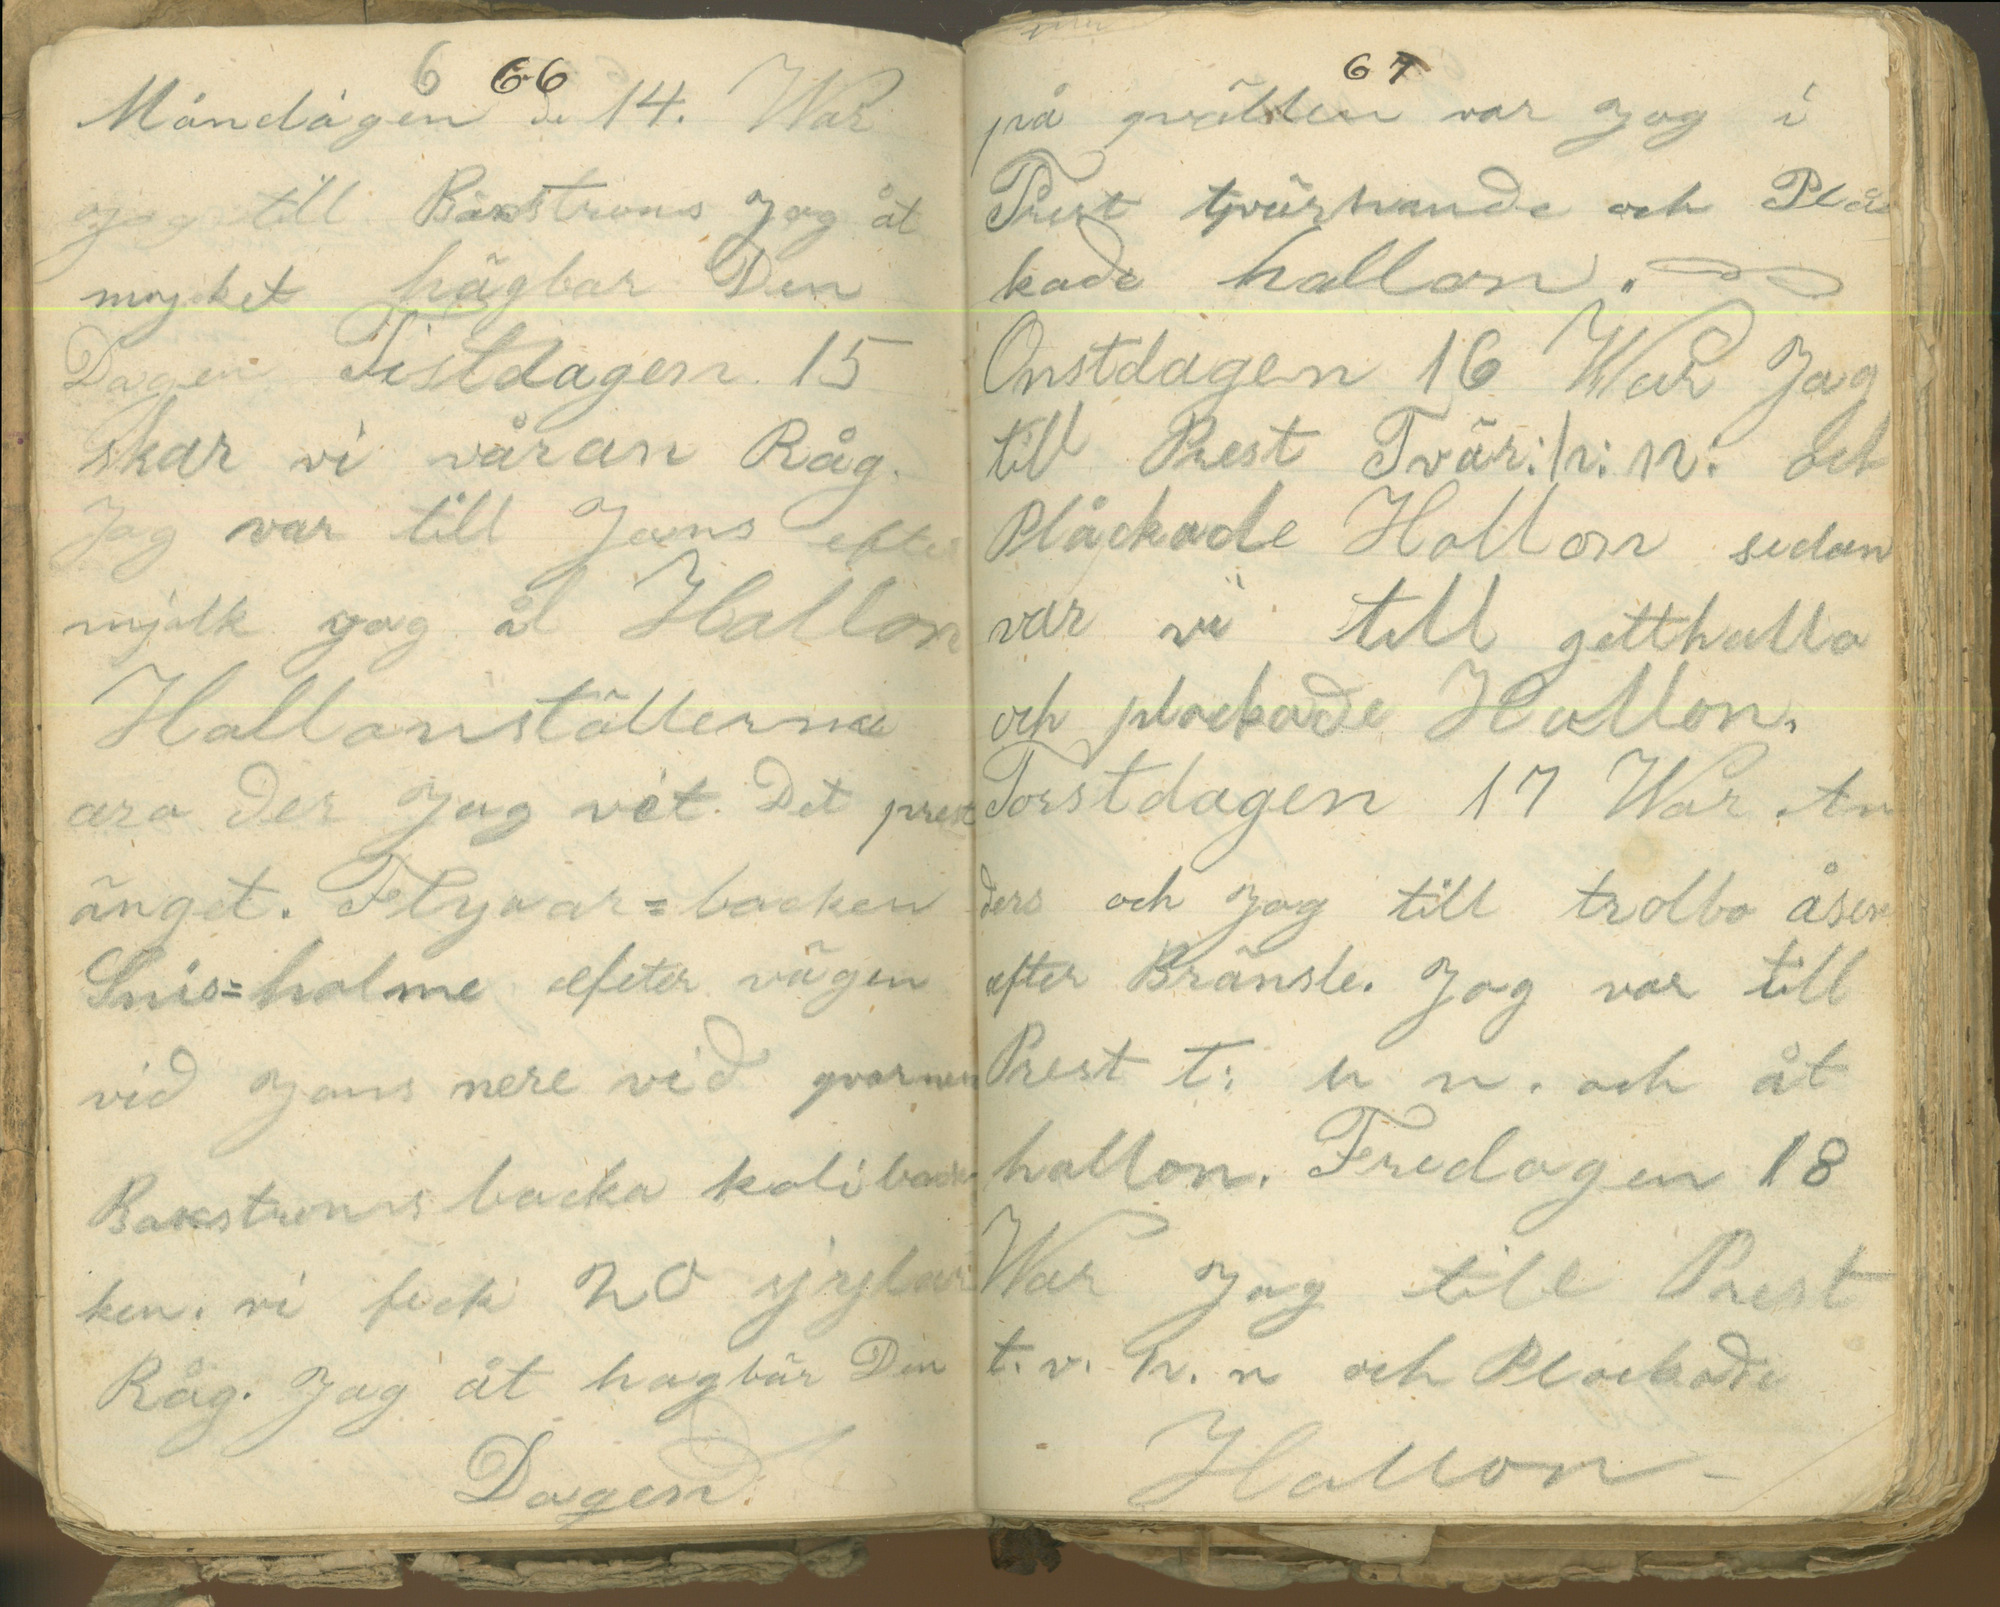 6 66
Måndagen de 14. War
jag till Baxstroms Jag åt
mycket hägbar Den
Dagen Tistdagen 15
skar vi våran Råg.
Jag var till Jans efter
mjölk jag åt Hallon
Hallonställerna
ara der Jag vet. Det prest
änget. Flyvar=backen
Snis=holme efeter vägen
vid Jans nere vid qvarnen
Baxstroms backa kolibac
ken. vi feck 20 sjylar
Råg. Jag åt hagbär Den
Dagen.
67
på qvällen var Jag i
Prest tjvärhande och Plå
kade hallon.
Onstdagen 16 War Jag
till Prest Tvär:h:n: och
Plåckade Hallon sedan
var vi till getthalla
och plockade Hallon.
Torstdagen 17 War An
ders och Jag till trolbo åsen
efter Bränsle. Jag var till
Prest t: h n. och åt
hallon. Fredagen 18
War Jag till Prest
t. v. h. n och Plockade
Hallon